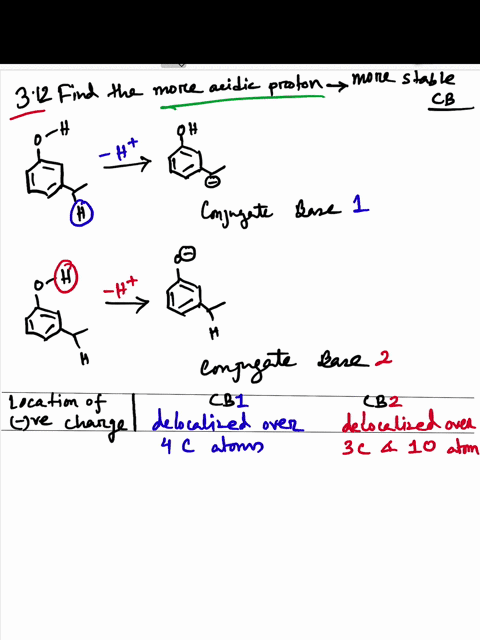 3.12 Find the more acidic proton → more stable
CB
O-H
-H+
OH
H
⊖
Conjugate Base 1
O-H
-H+
O⊖
H
H
Conjugate Base 2
Location of (-)ve charge
CB1
CB2
delocalized over
4 C atoms
delocalized over
3C & 1O atom